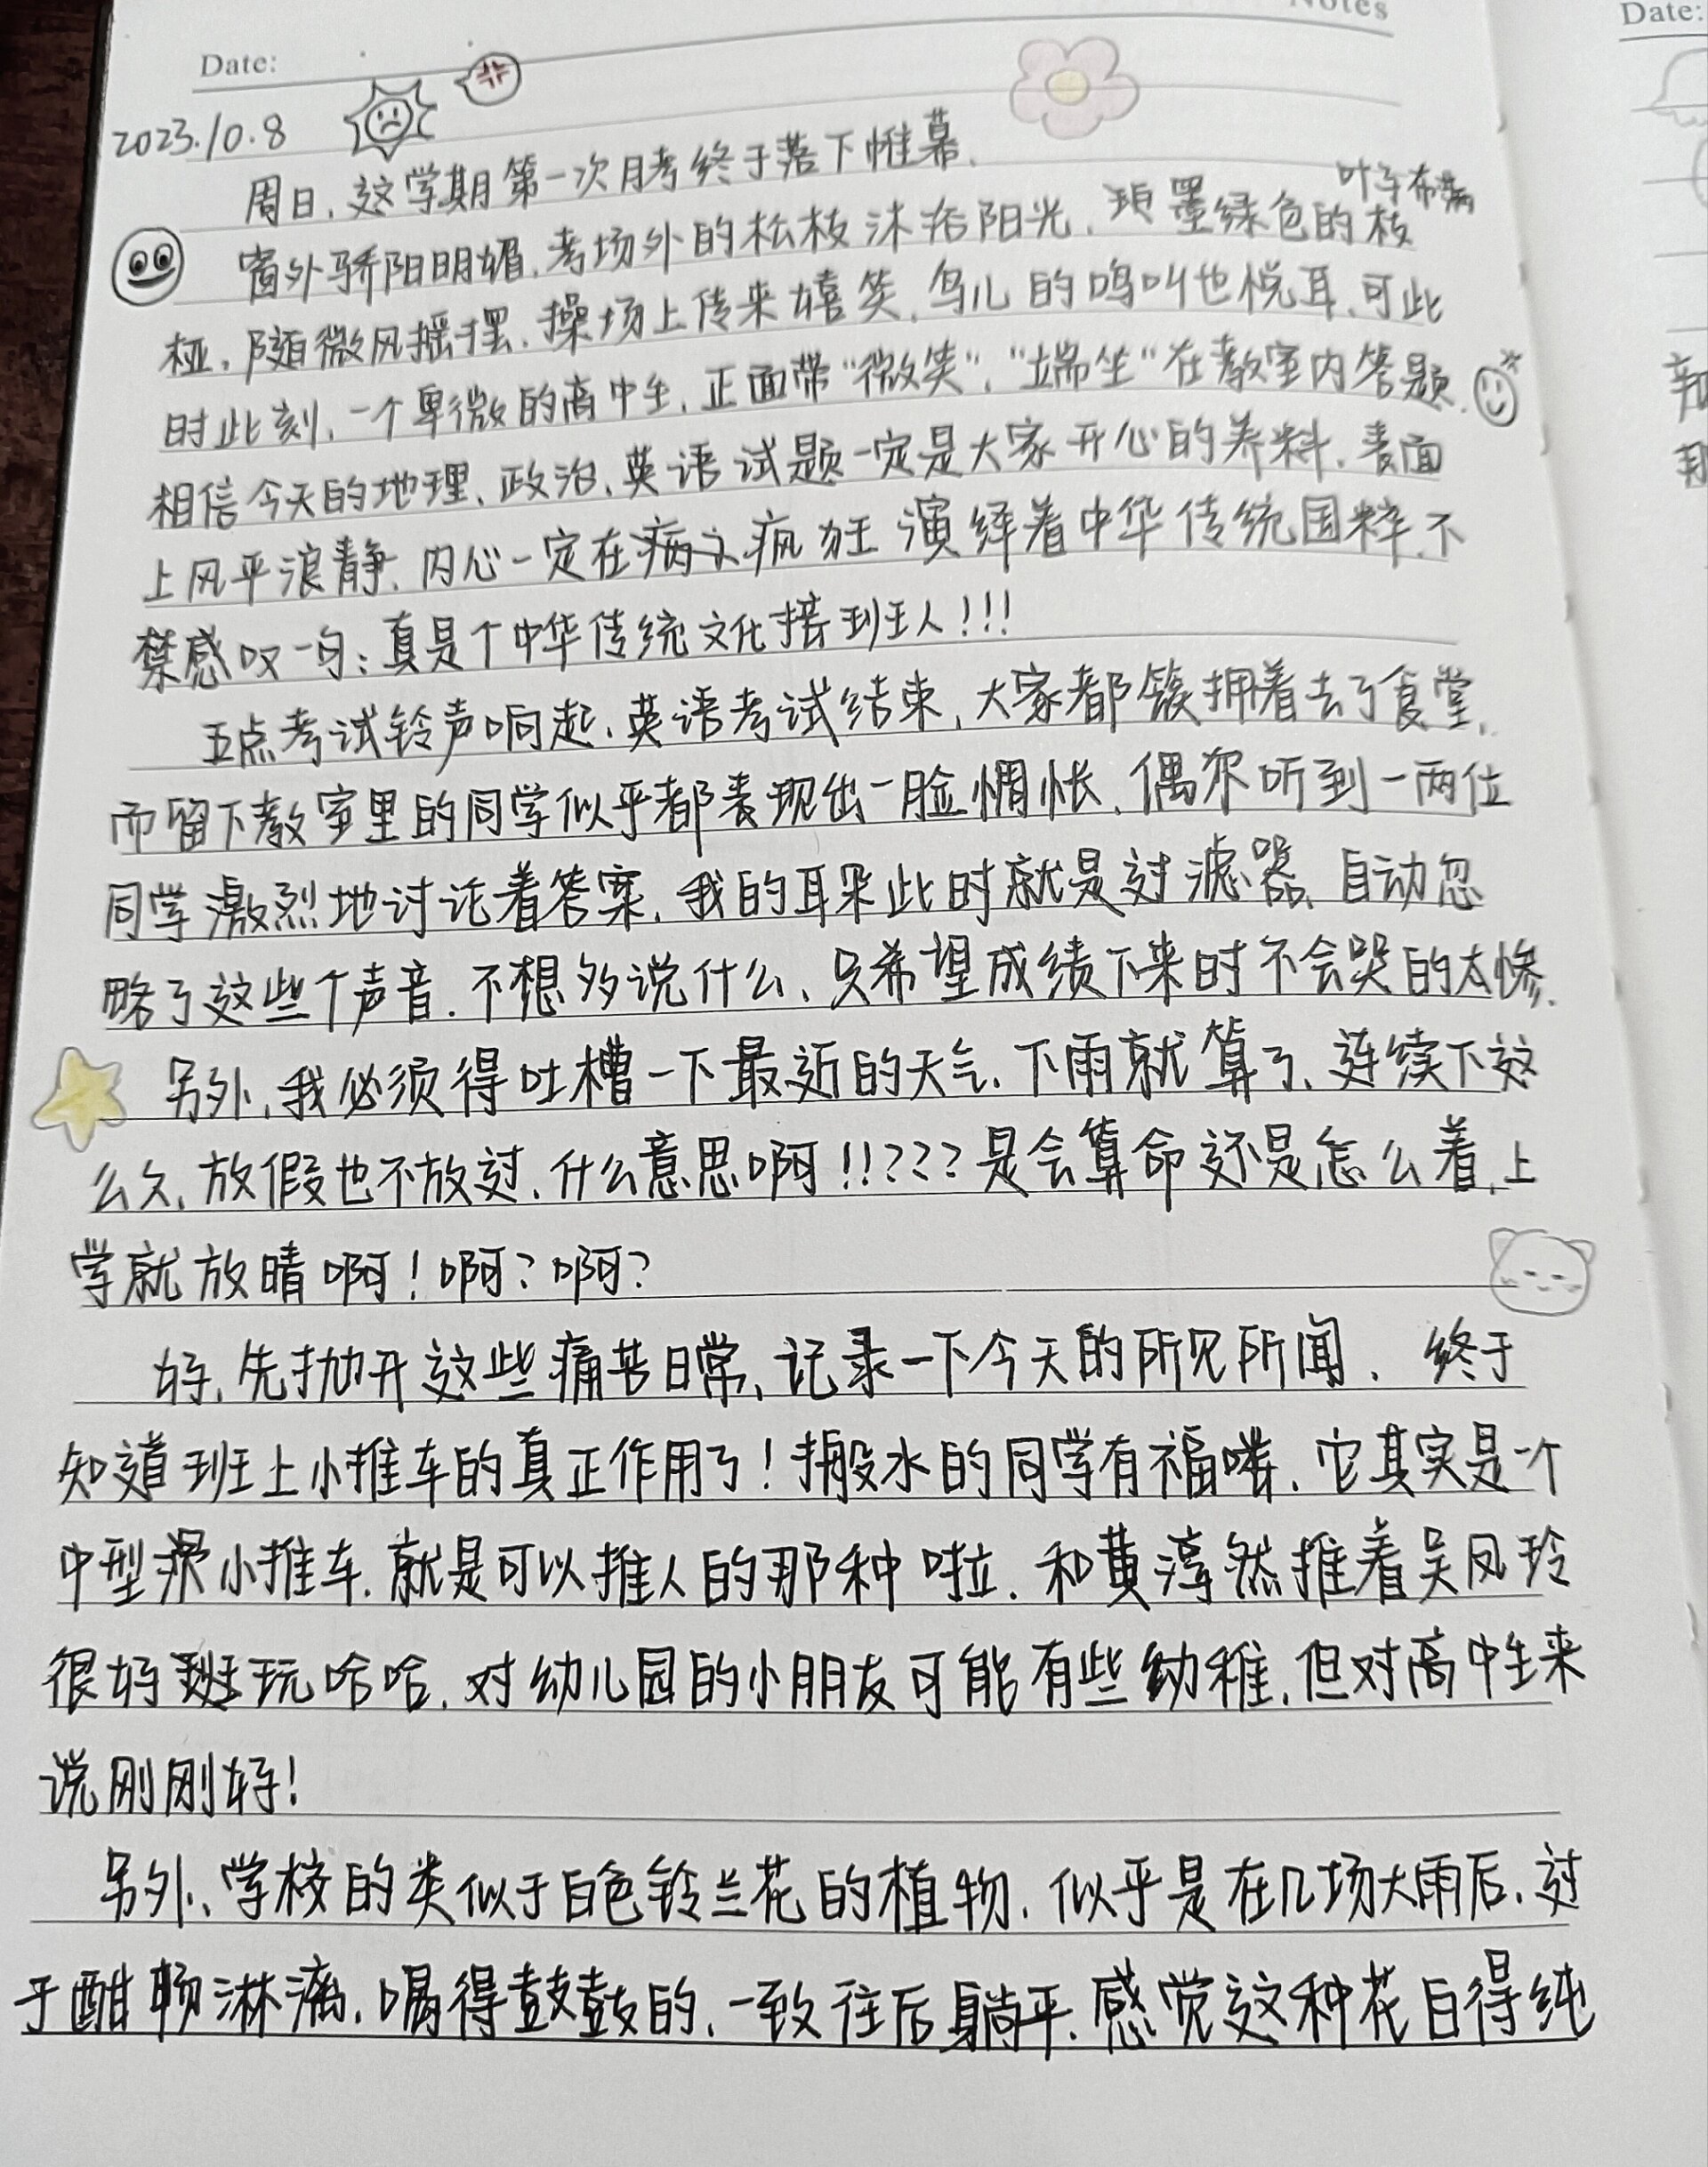 Notes
Date:
Date:
2023.10.8
周日，这学期第一次月考终于落下帷幕.
叶子布满
窗外骄阳明媚，考场外的松枝沐浴阳光，墨绿色的枝
桠，随微风摇摆，操场上传来嬉笑，鸟儿的鸣叫也悦耳，可此
时此刻，一个卑微的高中生，正面带“微笑”，“端坐”在教室内答题.
相信今天的地理、政治、英语试题一定是大家开心的养料，表面
上风平浪静，内心一定在疯狂演绎着中华传统国粹，不
禁感叹一句：真是个中华传统文化接班人！！！
五点考试铃声响起，英语考试结束，大家都簇拥着去了食堂，
而留下教室里的同学似乎都表现出一脸惆怅，偶尔听到一两位
同学激烈地讨论着答案，我的耳朵此时就是过滤器，自动忽
略了这些个声音.不想多说什么，只希望成绩下来时不会哭的太惨.
另外，我必须得吐槽一下最近的天气，下雨就算了，连续下这
么久，放假也不放过，什么意思啊！！？？？是会算命还是怎么着，上
学就放晴啊！啊？啊？
好，先抛开这些痛苦日常，记录一下今天的所见所闻. 终于
知道班上小推车的真正作用了！搬水的同学有福喽，它其实是个
中型小推车，就是可以推人的那种啦.和黄淳然推着吴凤玲
很好玩哈哈，对幼儿园的小朋友可能有些幼稚，但对高中生来
说刚刚好！
另外，学校的类似于白色铃兰花的植物，似乎是在几场大雨后，过
于酣畅淋漓，喝得鼓鼓的，一致往后躺平.感觉这种花白得纯